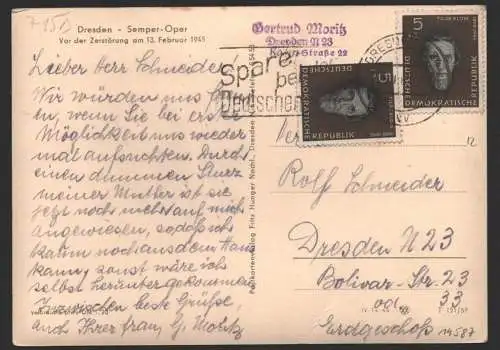 Dresden - Semper-Oper
Vor der Zerstörung am 13. Februar 1945
Lieber Herr Schneider
Wir würden uns
en, wenn Sie bei erster
Möglichkeit uns wieder
mal aufsuchten. Durch
einen dummen Sturz
meiner Mutter ist sie
jetzt noch mehr auf mich
angewiesen, sodaß ich
kaum noch aus dem Haus
kann, sonst wäre ich
selbst heruntergekommen
Inzwischen beste Grüße,
auch Ihrer Frau, G. Moritz
Postkartenverlag Fritz Hunger Nachf., Dresden N
Gertrud Moritz
Dresden N 23
Straße 22
Spare
bei
Deutsche
5
DEUTSCHE
DEMOKRATISCHE
REPUBLIK
5
DEUTSCHE
DEMOKRATISCHE
REPUBLIK
12
Rolf Schneider
Dresden N 23
Bolivar-Str. 23
od. 33
Erdgeschoß
14587